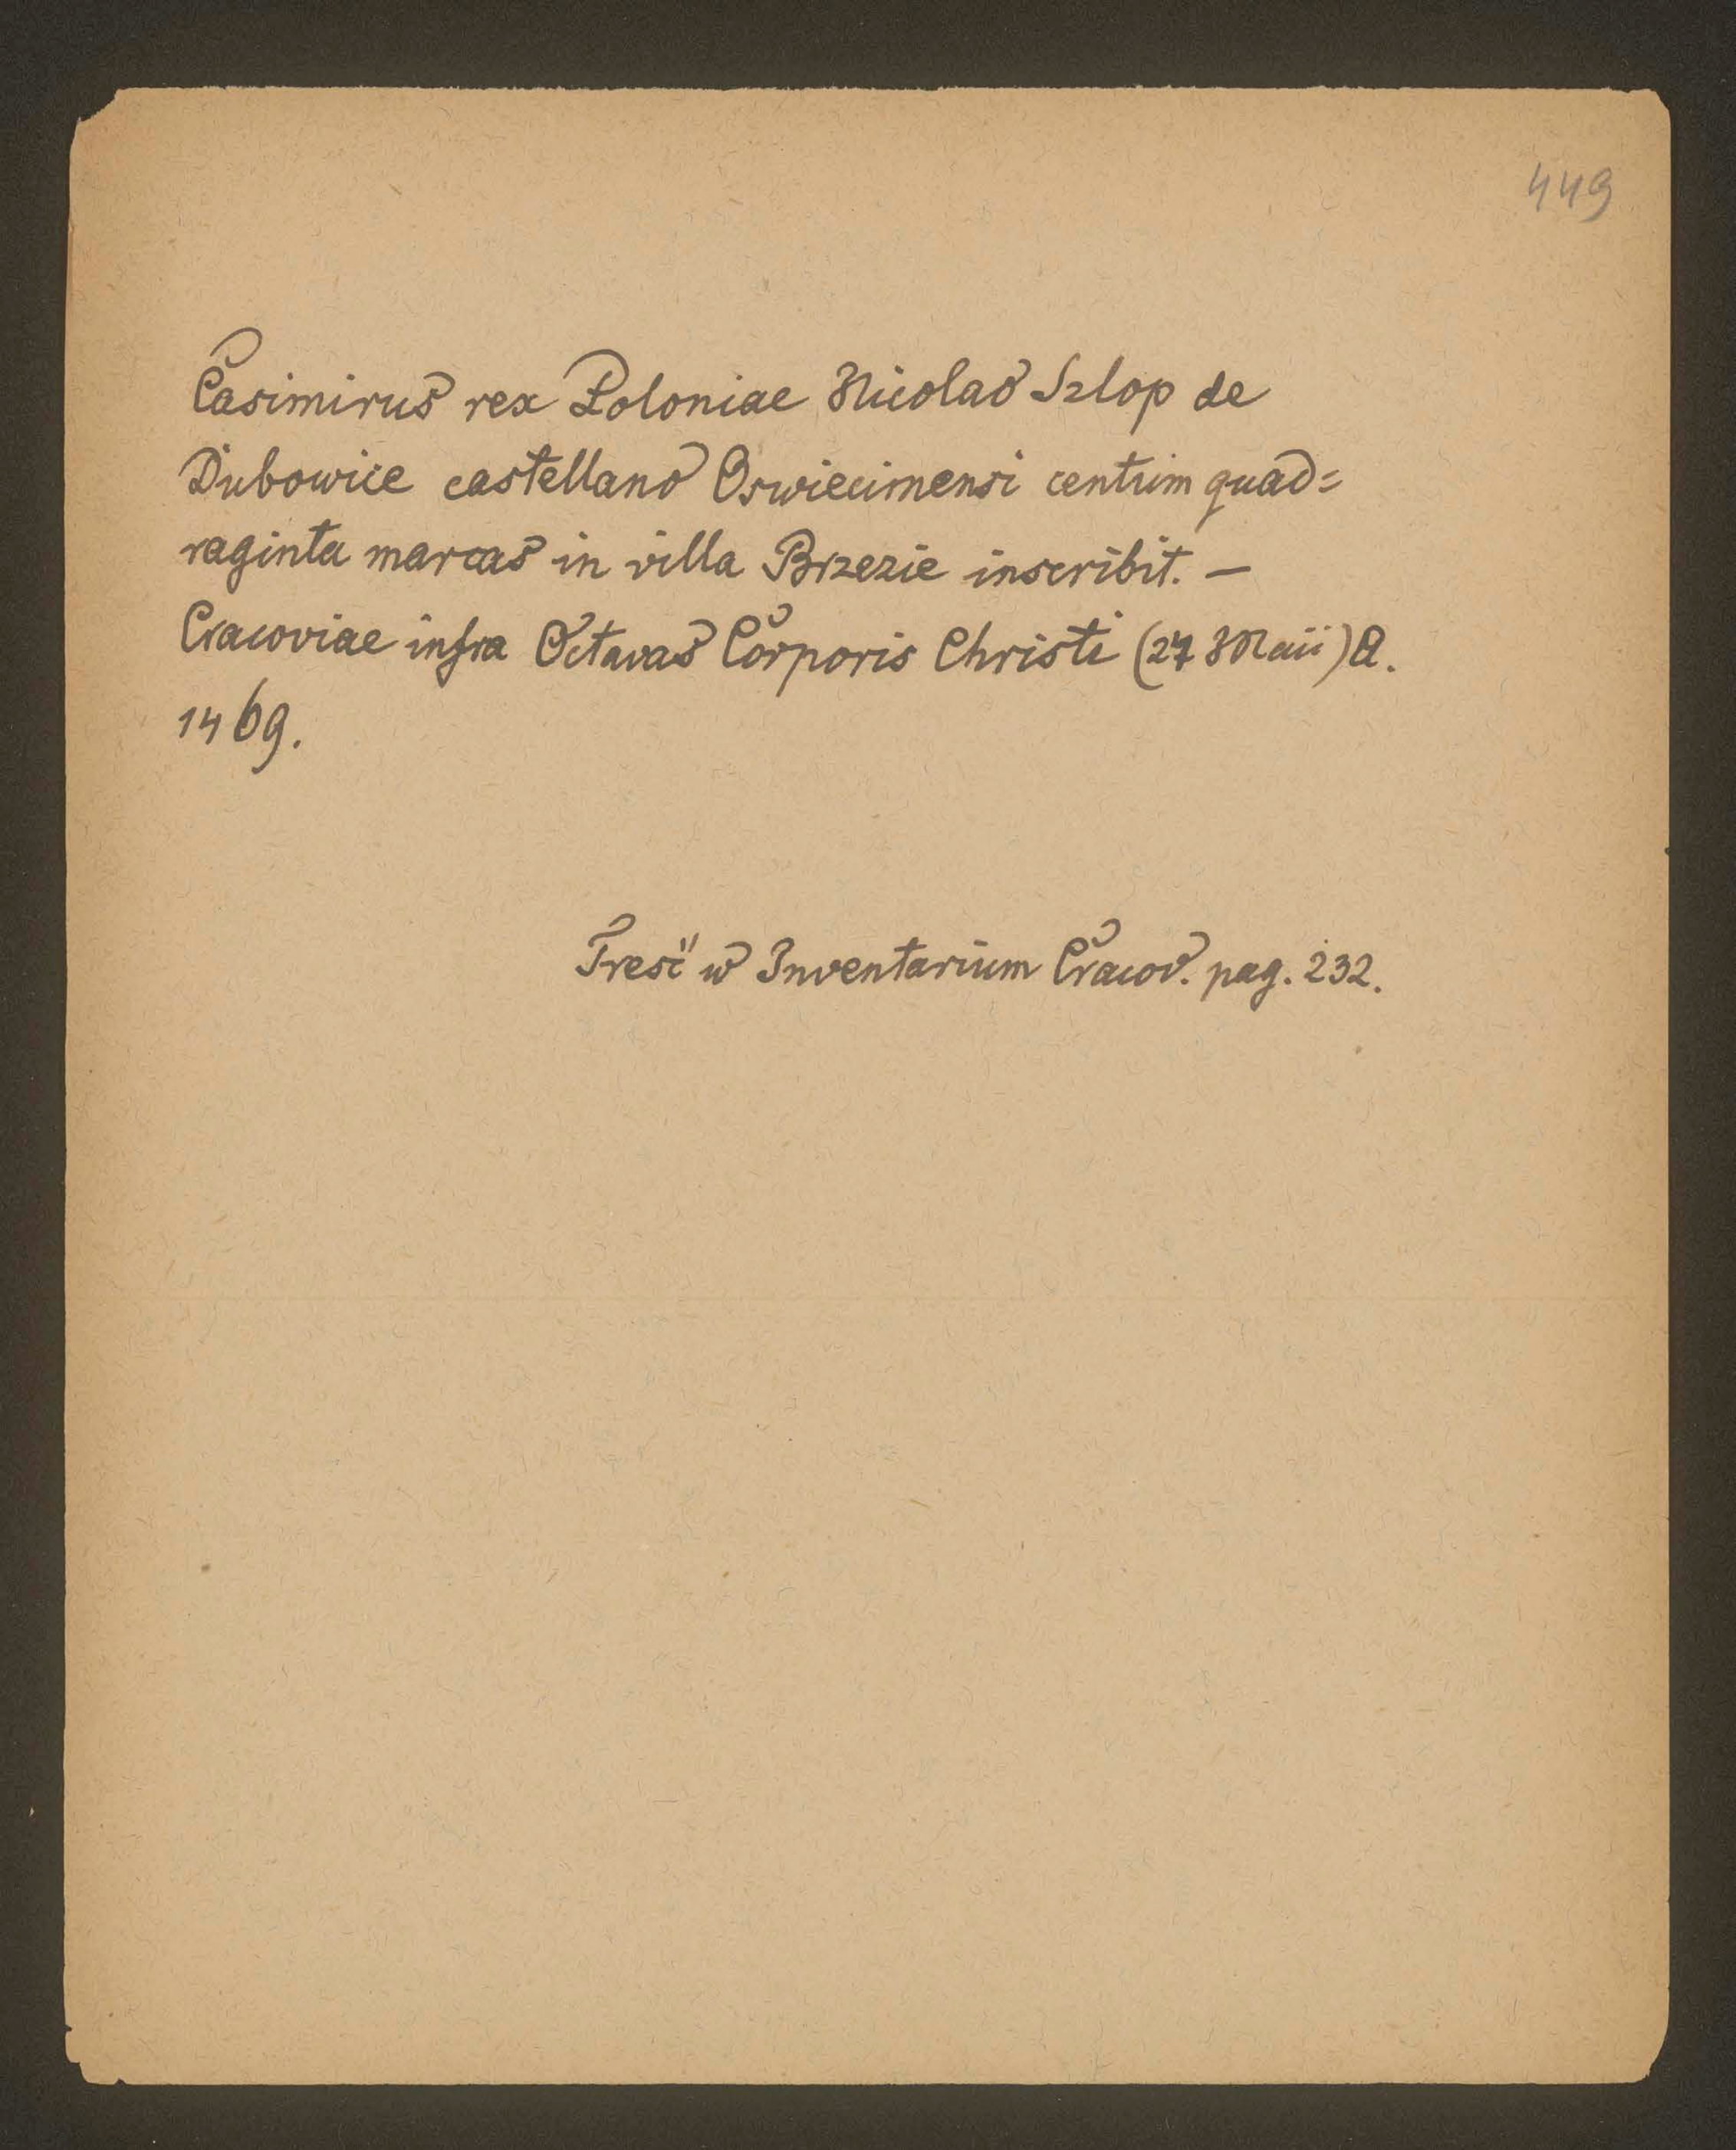 449
Casimirus rex Poloniae Nicolao Szlop de
Dubowice castellano Oswiecimensi centum quad=
raginta marcas in villa Brzezie inscribit. —
Cracoviae infra Octavas Corporis Christi (27 Maii) A.
1469.
Treść w Inventarium Cracov. pag. 232.